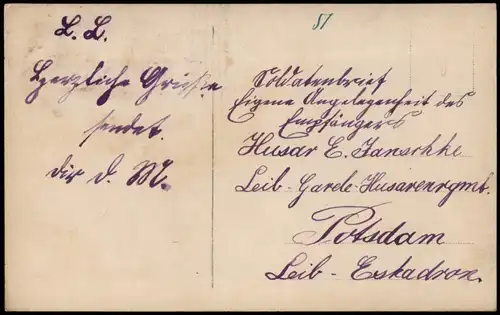 L. L.
Herzliche Grüsse
sendet.
dir d. M.
51
Soldatenbrief
Eigene Angelegenheit des
Empfängers
Husar E. Janschke
Leib-Garde-Husarenrgmt.
Potsdam
Leib-Eskadron.